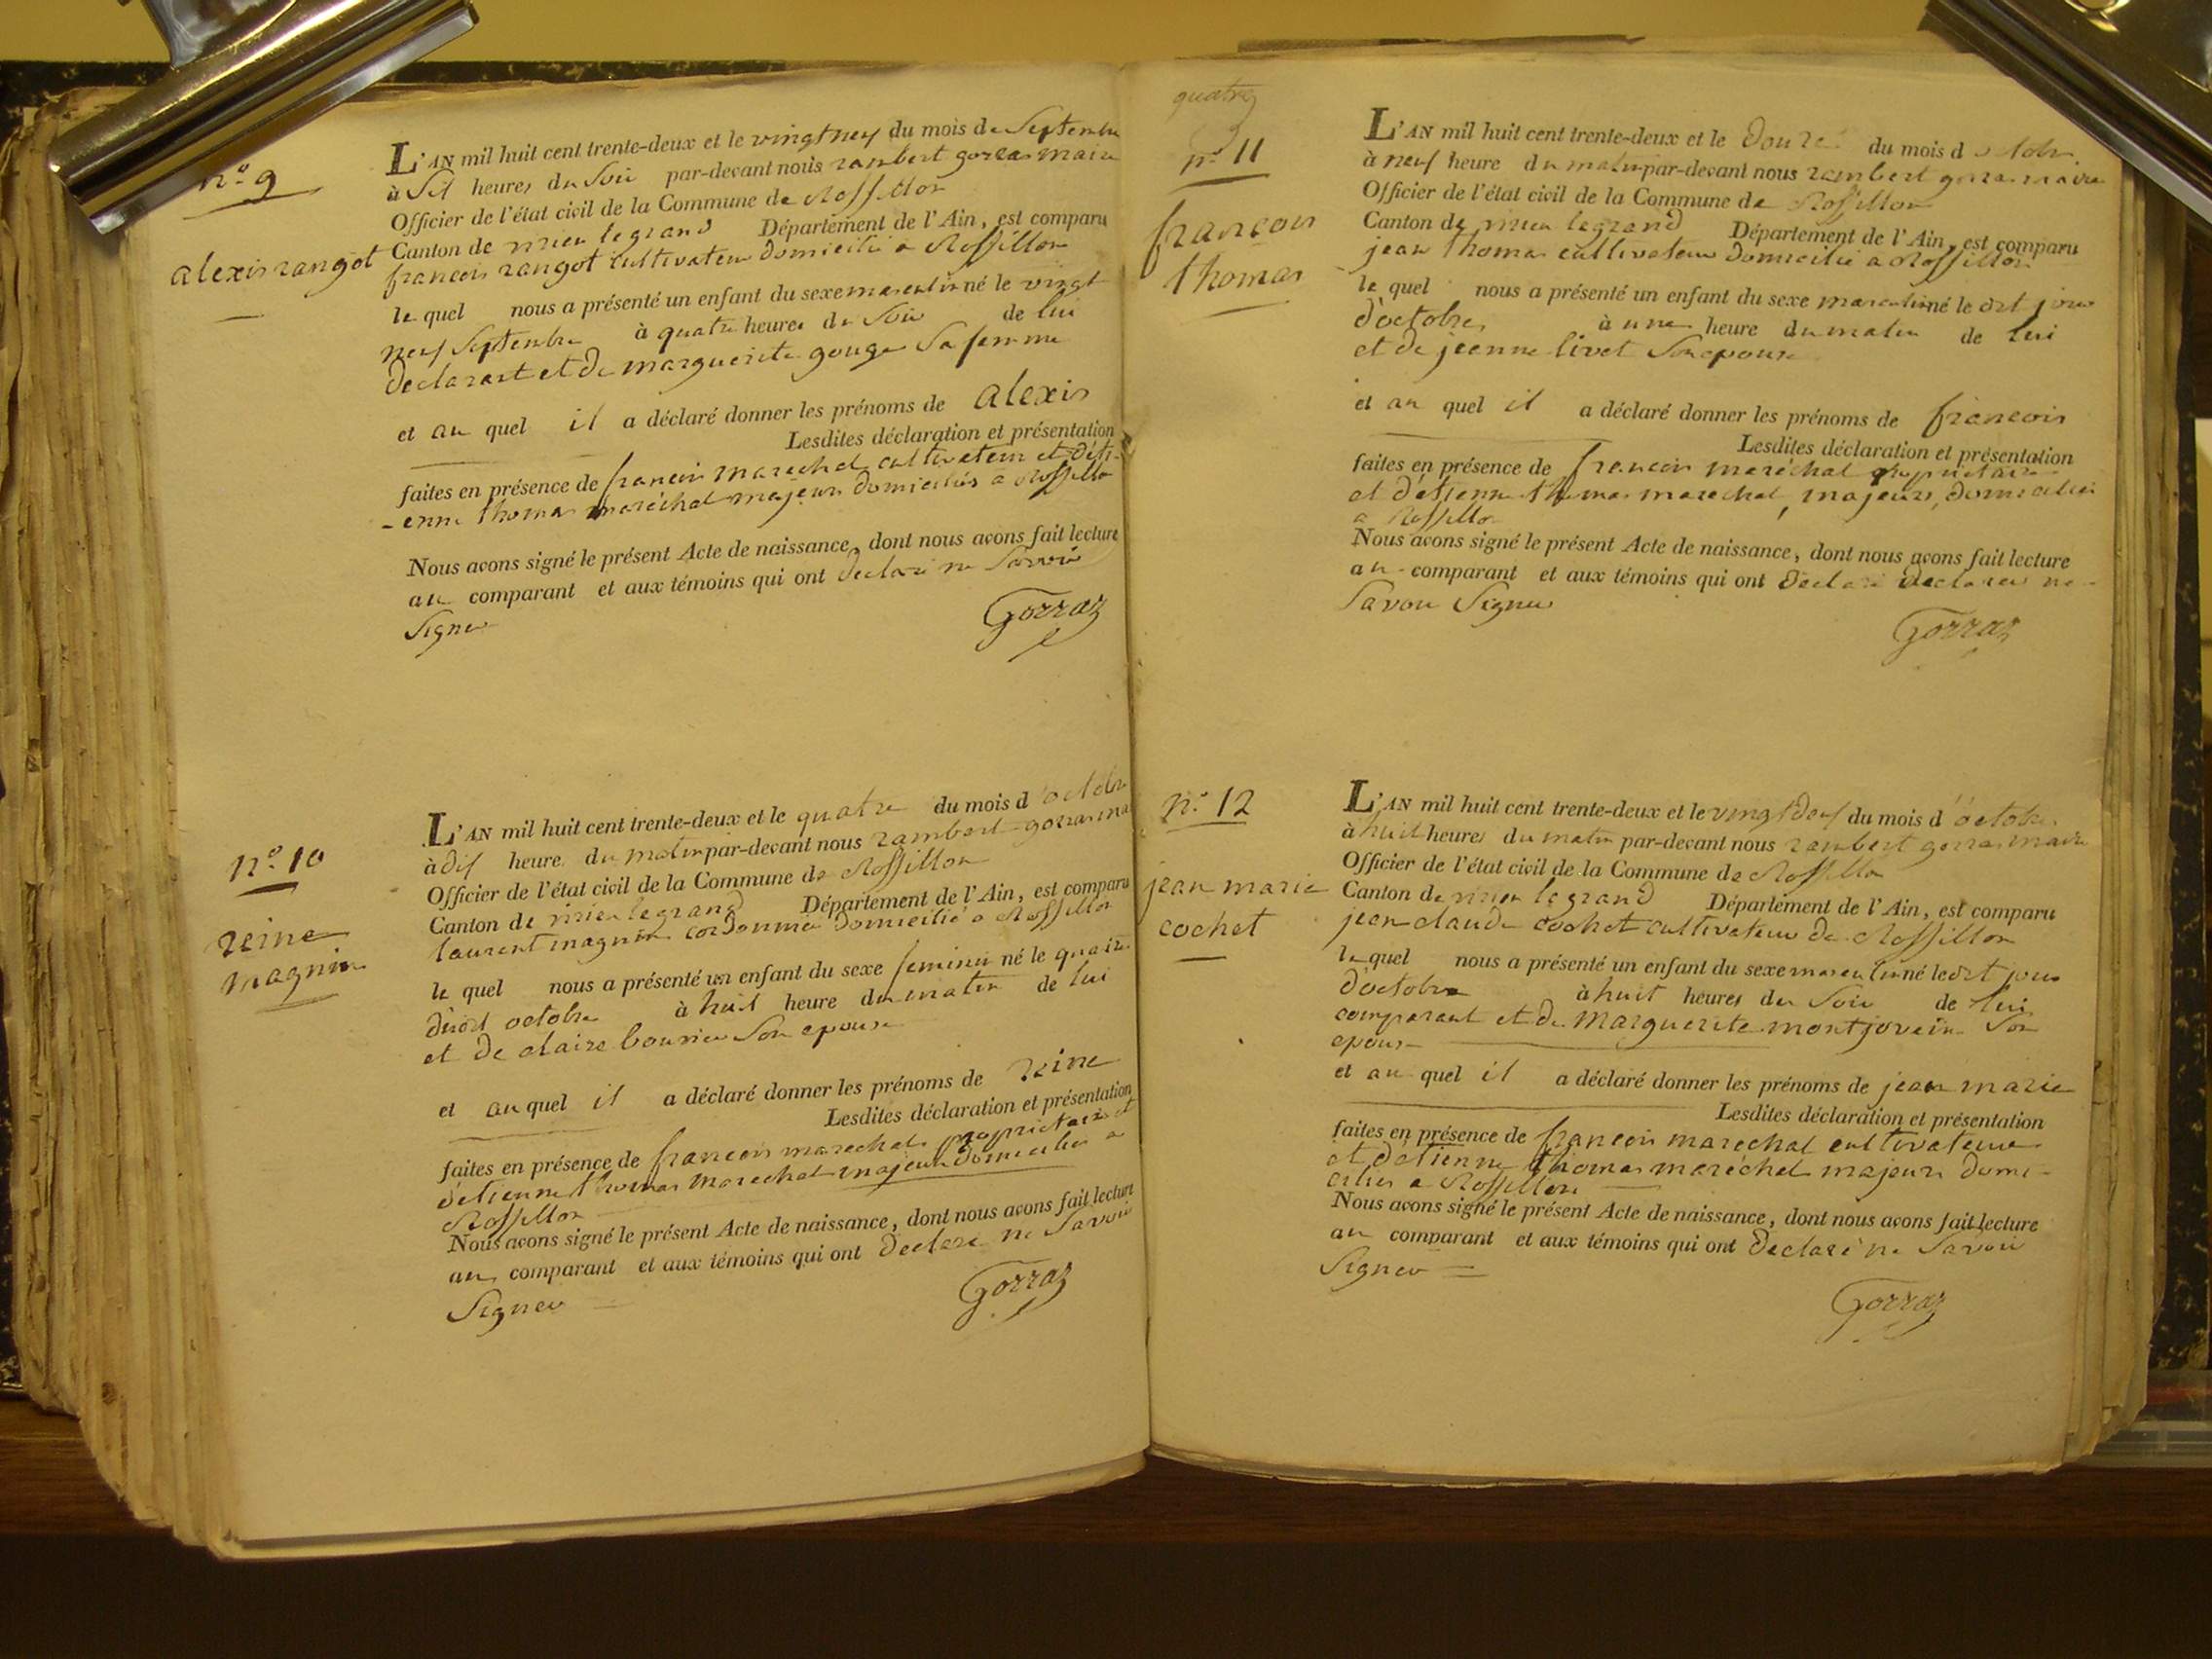 n.o 9
alexis rangot
L'AN mil huit cent trente-deux et le vingt neuf du mois de Septembre
à Six heures du Soir par-devant nous rambert gorraz maire
Officier de l'état civil de la Commune de Rossillon
Canton de virieu legrand Département de l'Ain, est comparu
francois rangot cultivateur domicilié a Rossillon
le quel nous a présenté un enfant du sexe masculin né le vingt
neuf Septembre à quatre heures du Soir de lui
declarant et de marguerite gouge Sa femme
et au quel il a déclaré donner les prénoms de alexis
Lesdites déclaration et présentation
faites en présence de francois marechal cultivateur et d'éti-
-enne thomas maréchal majeurs domiciliés a Rossillon
Nous avons signé le présent Acte de naissance, dont nous avons fait lecture
au comparant et aux témoins qui ont declaré ne Savoir
Signer
Gorraz
n.o 10
reine
magnin
L'AN mil huit cent trente-deux et le quatre du mois d'octobre
à dix heure du matin par-devant nous rambert gorraz
Officier de l'état civil de la Commune de Rossillon
Canton de virieu legrand Département de l'Ain, est comparu
laurent magnin cordonnier domicilié a Rossillon
le quel nous a présenté un enfant du sexe feminin né le quatre
dudit octobre à huit heure du matin de lui
et de claire Son epouse
et au quel il a déclaré donner les prénoms de reine
Lesdites déclaration et présentation
faites en présence de francois marechal proprietaire et
d'etienne thomas marechal majeurs domiciliés a
Rossillon
Nous avons signé le présent Acte de naissance, dont nous avons fait lecture
au comparant et aux témoins qui ont declaré ne Savoir
Signer
Gorraz
quatre
n.o 11
francois
thomas
L'AN mil huit cent trente-deux et le douze du mois d octobre
à neuf heure du matin par-devant nous rambert gorraz maire
Officier de l'état civil de la Commune de Rossillon
Canton de virieu legrand Département de l'Ain, est comparu
jean thomas cultivateur domicilié a Rossillon
le quel nous a présenté un enfant du sexe masculin né le dit jour
d'octobre à une heure du matin de lui
et de jeanne livet Son epouse
et au quel il a déclaré donner les prénoms de francois
Lesdites déclaration et présentation
faites en présence de francois maréchal proprietaire
et d'etienne thomas marechal, majeurs, domiciliés
a Rossillon
Nous avons signé le présent Acte de naissance, dont nous avons fait lecture
au comparant et aux témoins qui ont declaré declarer ne
Savoir Signer
Gorraz
n.o 12
jean marie
cochet
L'AN mil huit cent trente-deux et le du mois d'octobre
à huit heures du matin par-devant nous rambert gorraz maire
Officier de l'état civil de la Commune de Rossillon
Canton de virieu legrand Département de l'Ain, est comparu
jean claude cochet cultivateur de Rossillon
le quel nous a présenté un enfant du sexe masculin né le dit jour
d'octobre à huit heures du Soir de lui
comparant et de Marguerite montjovein Son
epouse
et au quel il a déclaré donner les prénoms de jean marie
Lesdites déclaration et présentation
faites en présence de francois marechal cultivateur
et d'étienne thomas maréchal majeurs domi-
ciliés a Rossillon
Nous avons signé le présent Acte de naissance, dont nous avons fait lecture
au comparant et aux témoins qui ont declaré ne Savoir
Signer
Gorraz